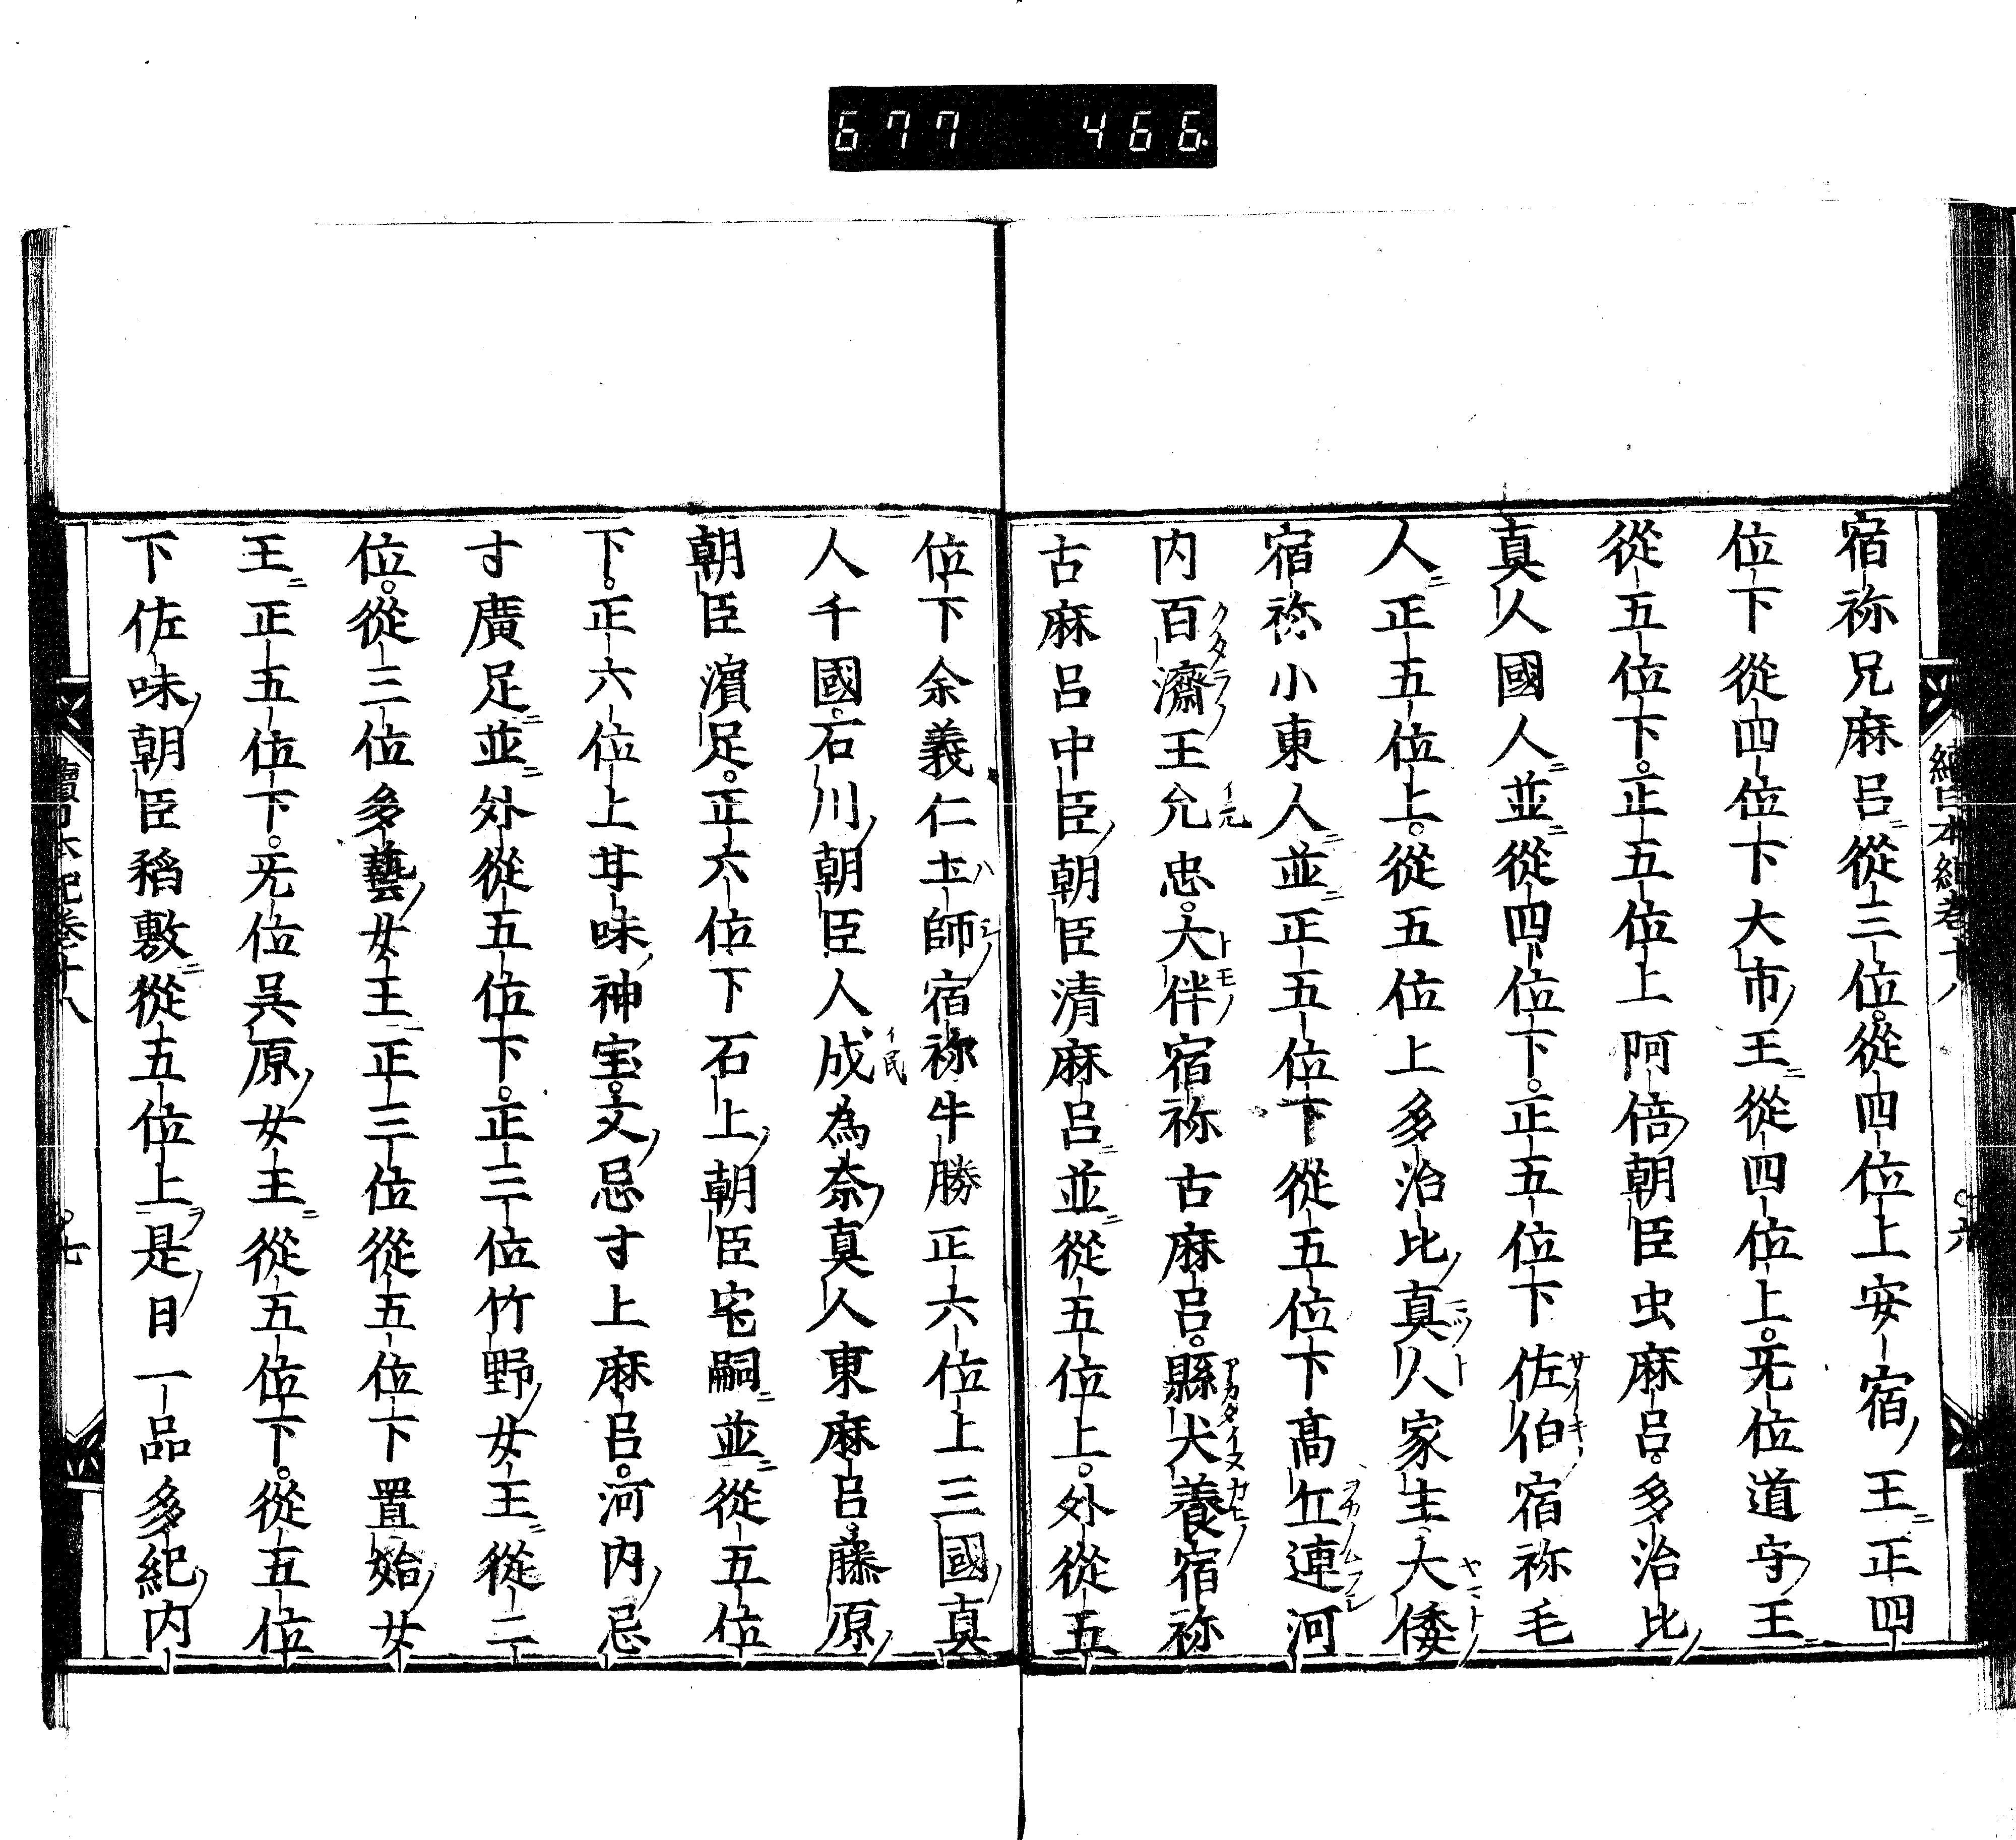 677 466
宿祢兄麻呂從三位。從四位上安宿王正四
位下從四位下大市王從四位上。无位道守王
從五位下。正五位上阿倍朝臣虫麻呂。多治比
真人國人並從四位下。正五位下佐伯宿祢毛
人正五位上。從五位上多治比真人家主。大倭
宿祢小東人並正五位下從五位下高丘連河
内百濟王允忠。大伴宿祢古麻呂。縣犬養宿祢
古麻呂中臣朝臣清麻呂並從五位上。外從五
位下余義仁土師宿祢牛勝正六位上三國真
人千國。石川朝臣人成為奈真人東麻呂。藤原
朝臣濵足。正六位下石上朝臣宅嗣並從五位
下。正六位上甘味神宝。文忌寸上麻呂。河内忌
寸廣足並外從五位下。正三位竹野女王從二
位。從三位多藝女王正三位從五位下置始女
王正五位下。无位呉原女王從五位下。從五位
下佐味朝臣稻敷從五位上是日一品多紀内
續日本紀卷十八
六
續日本紀卷十八
七